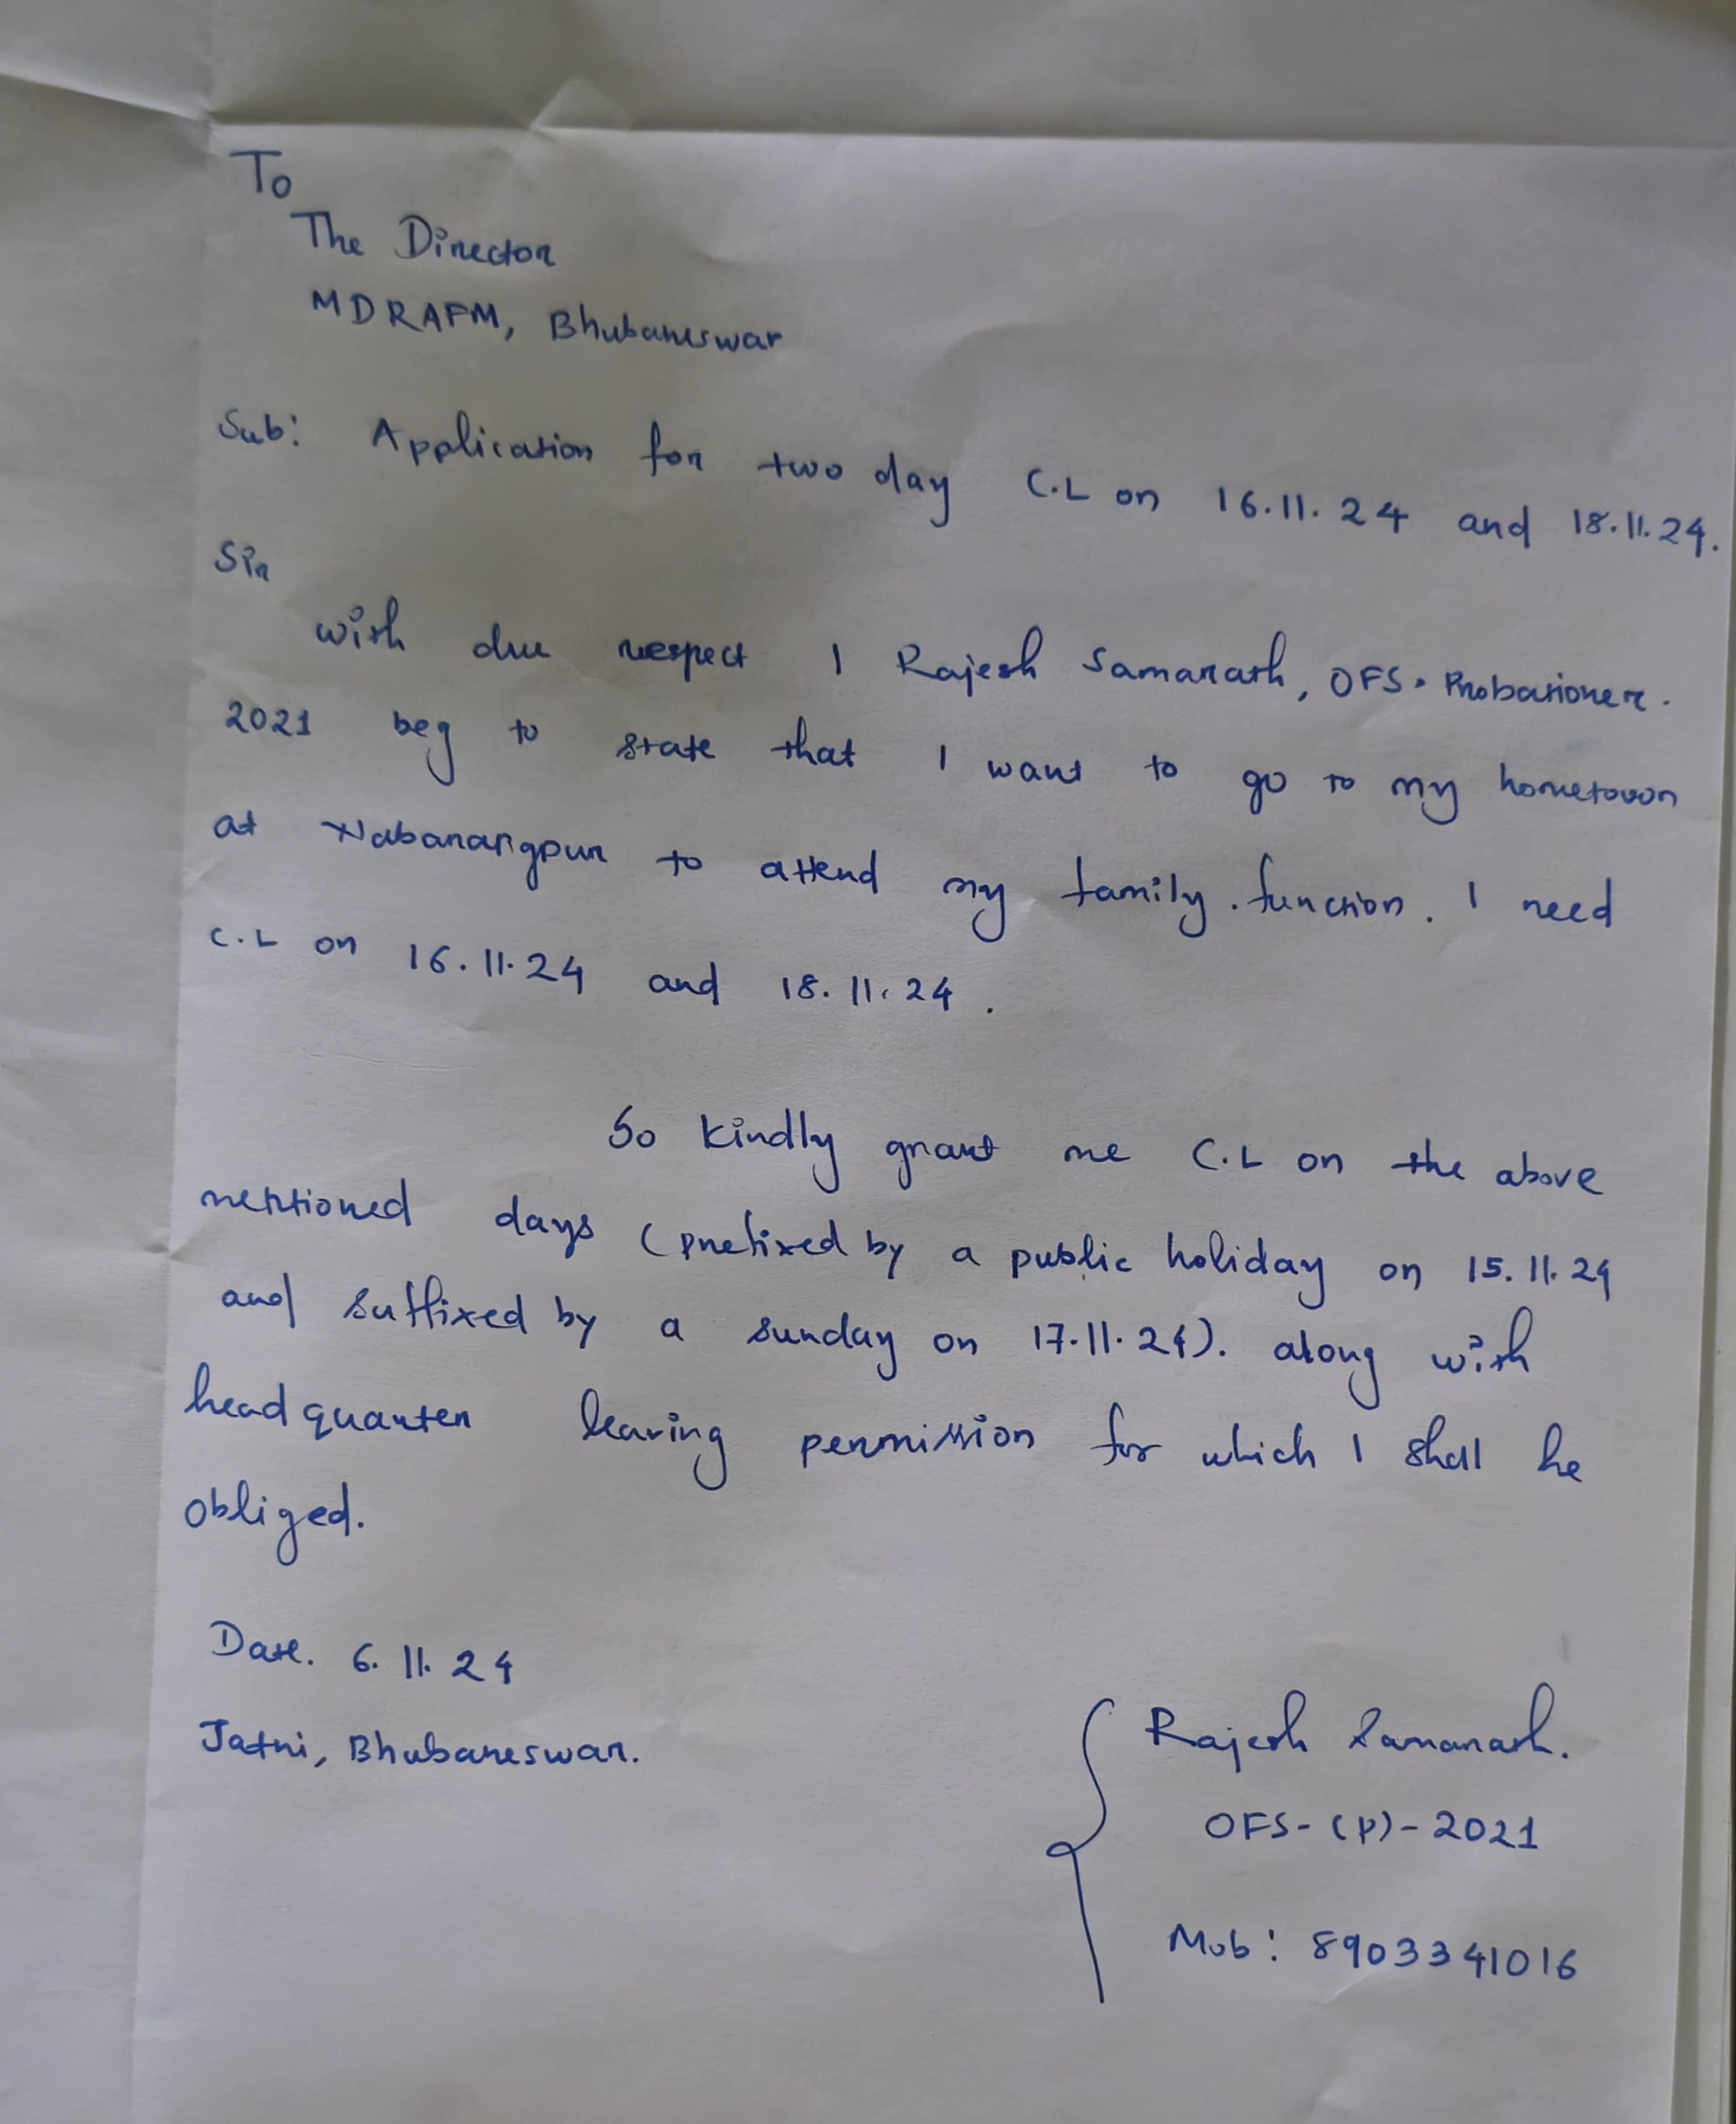 To
The Director
MDRAFM, Bhubaneswar
Sub: Application for two day C.L on 16.11.24 and 18.11.24.
Sir
with due respect I Rajesh Samarath, OFS. Probationer.
2021 beg to state that I want to go to my hometown
at Nabarangpur to attend my family function. I need
C.L on 16.11.24 and 18.11.24.
So kindly grant me C.L on the above
mentioned days (prefixed by a public holiday on 15.11.24
and suffixed by a sunday on 17.11.24). along with
headquarter leaving permission for which I shall be
obliged.
Date. 6.11.24
Jatni, Bhubaneswar.
Rajesh Samarath.
OFS-(P)-2021
Mob: 8903341016